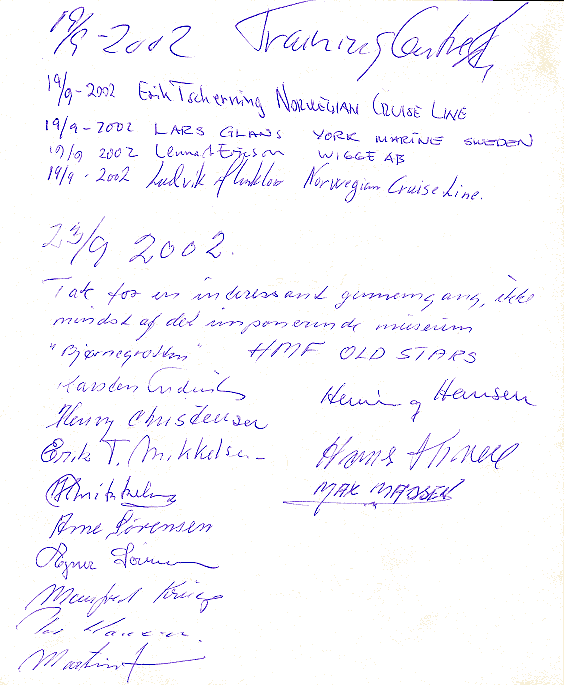 19/9-2002 Training Centret
19/9-2002 Erik Tscherning NORWEGIAN CRUISE LINE
19/9-2002 LARS GLANS YORK MARINE SWEDEN
19/9 2002 Lennart Ericson WIGGE AB
19/9-2002 Ludvik Norwegian Cruise Line.
23/9 2002.
Tak for en interessant gennemgang, ikke
mindst af det imponerende museum
"Bjørnegrotten" HMF OLD STARS
Karsten
Henning Hansen
Henry Christensen
Erik T. Mikkelsen
Hans
MAX MADSEN
Arne Sørensen
Agner
Manfred Krüger
Hansen.
Martin